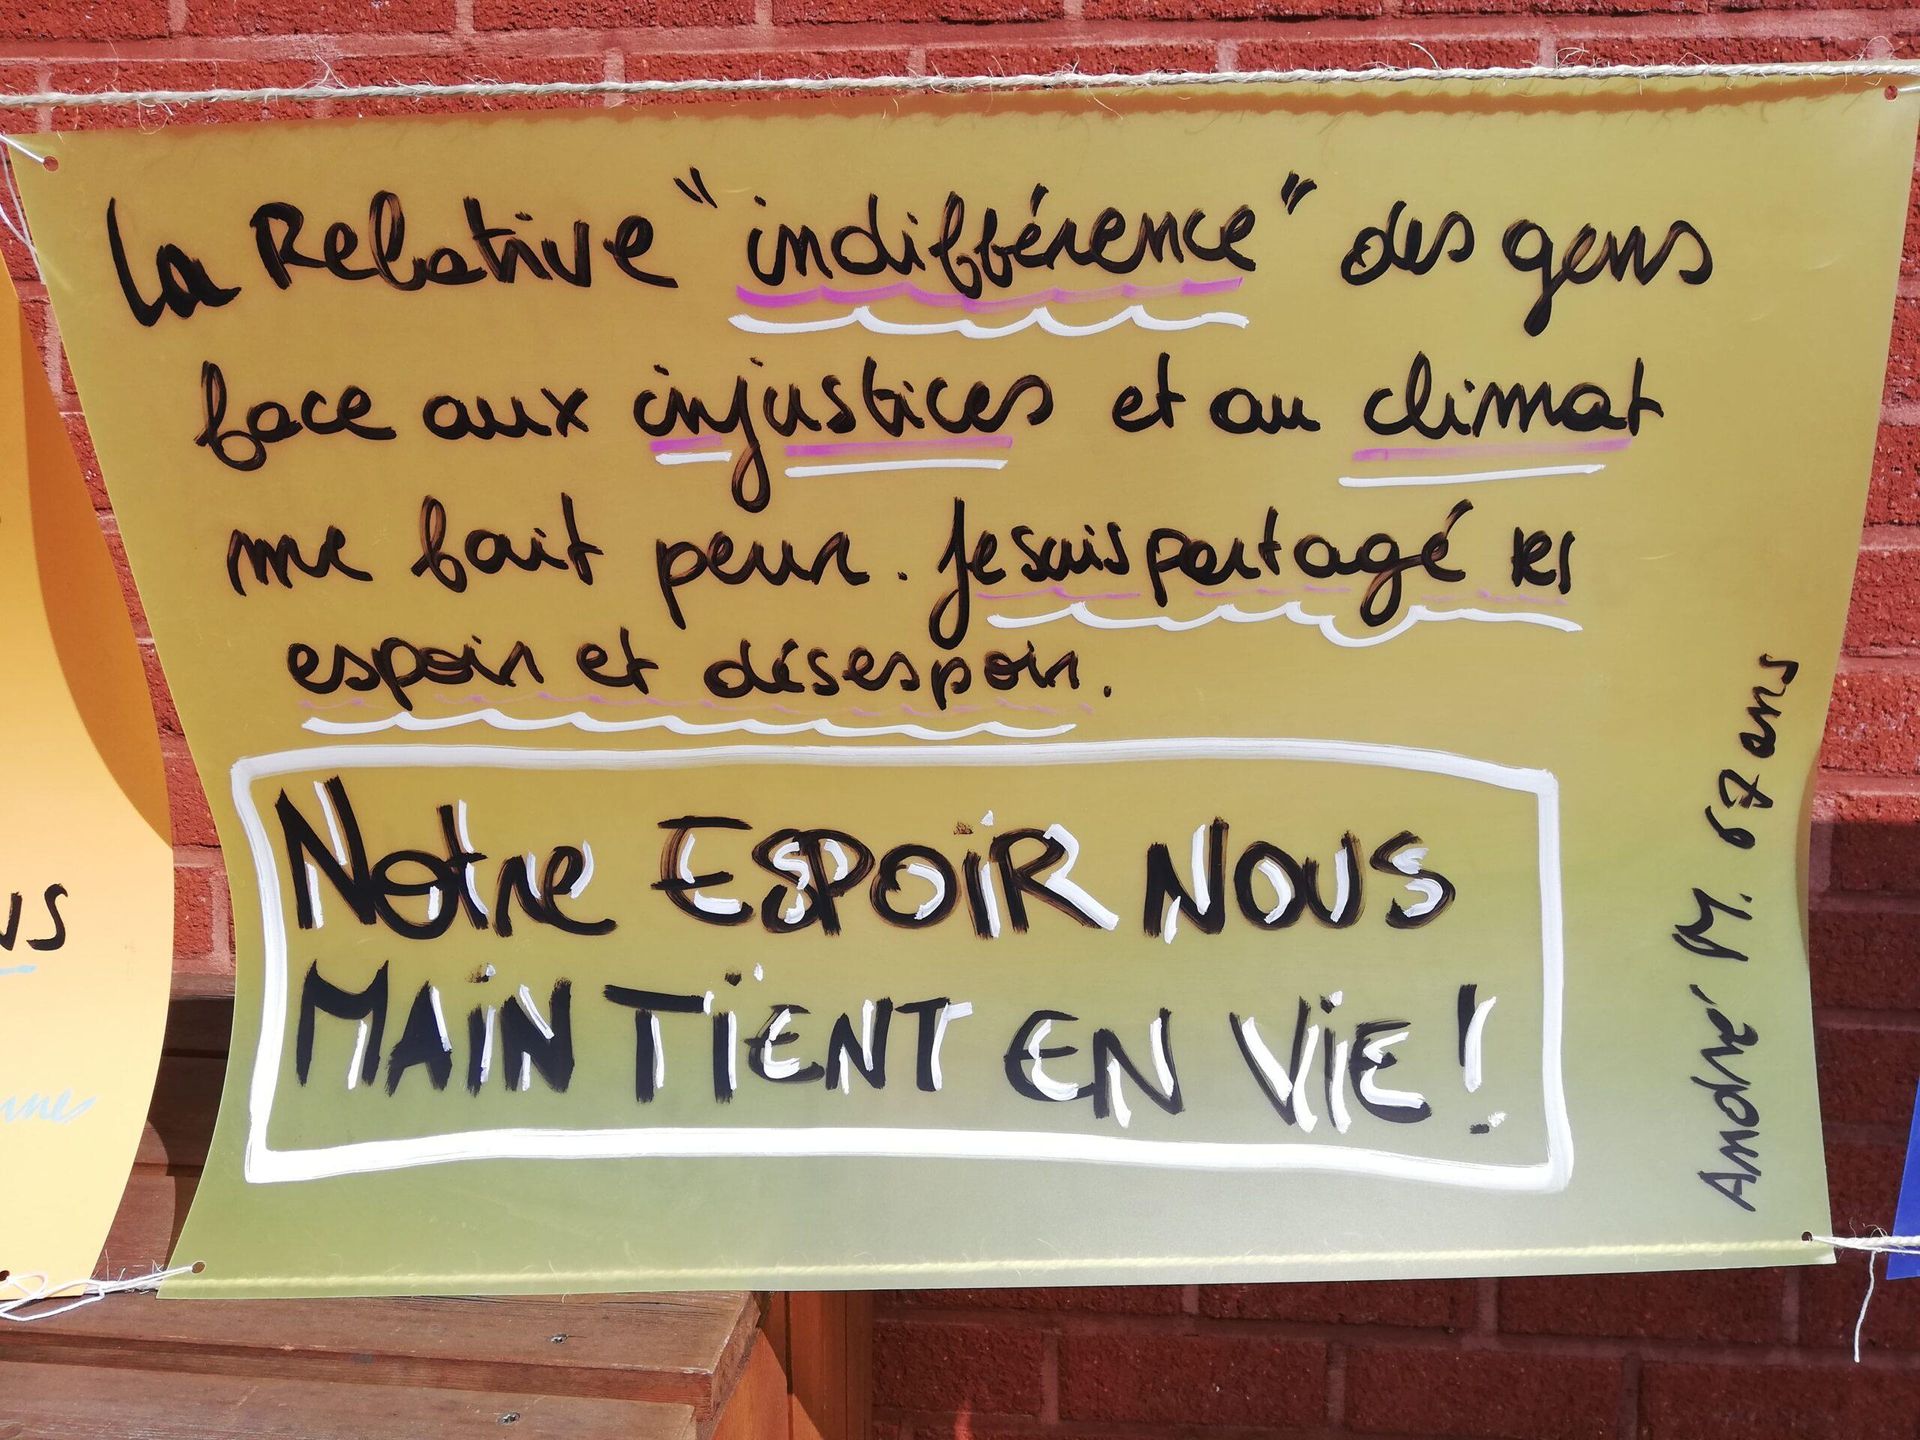 La Relative "indifférence" des gens
face aux injustices et au climat
me fait peur. Je suis partagé
espoir et désespoir.
Notre ESPOIR NOUS
MAINTIENT EN VIE !
André M. 67 ans